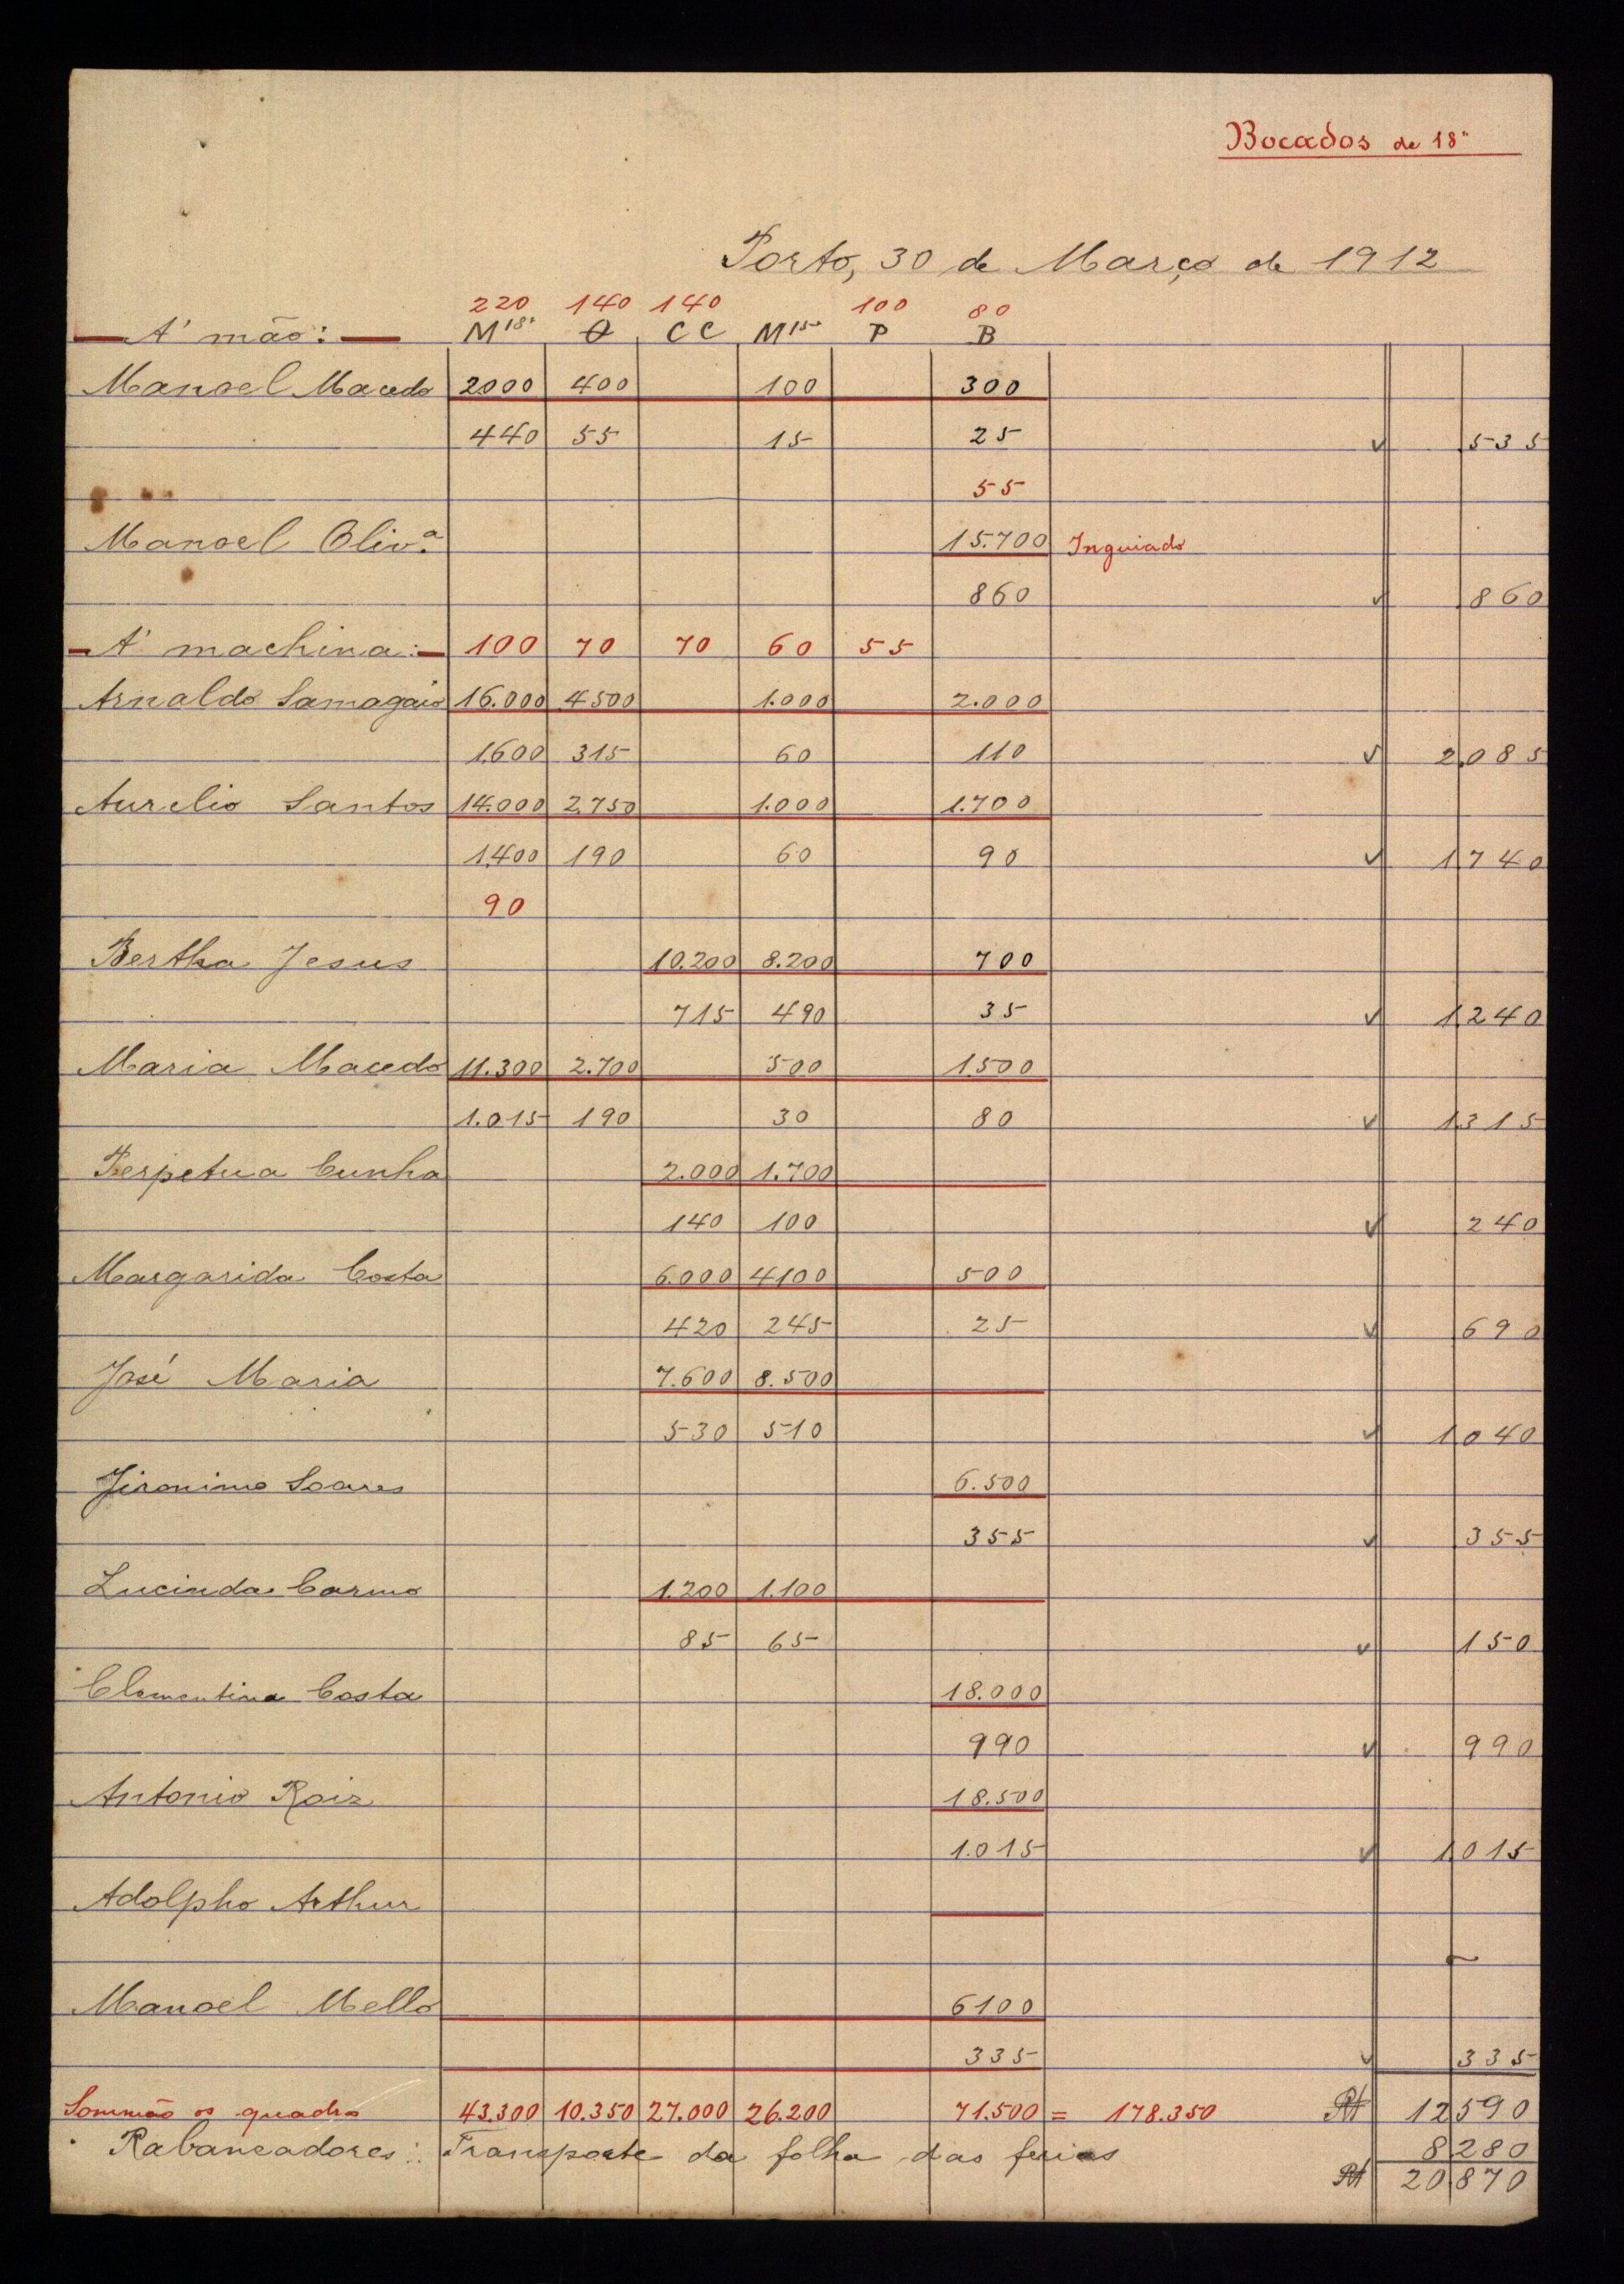 Bocados de 18"
Porto, 30 de Março de 1912
220 140 140 100 80
A' mão: M18" O CC M15" P B
Manoel Macedo 2000 400 100 300
440 55 15 25 535
55
Manoel Oliv.ª 15.700 Inguiado
860 860
A' machina: 100 70 70 60 55
Arnaldo Samagaio 16.000 4500 1.000 2.000
1.600 315 60 110 2.085
Aurelio Santos 14.000 2.750 1.000 1.700
1.400 190 60 90 1740
90
Bertha Jesus 10.200 8.200 700
715 490 35 1240
Maria Macedo 11.300 2.700 500 1.500
1.015 190 30 80 1315
Perpetua Cunha 2.000 1.700
140 100 240
Margarida Costa 6.000 4100 500
420 245 25 690
José Maria 7.600 8.500
530 510 1040
Jironimo Soares 6.500
355 355
Lucinda Carmo 1.200 1.100
85 65 150
Clementina Costa 18.000
990 990
Antonio Roiz 18.500
1.015 1015
Adolpho Arthur
Manoel Mello 6100
335 335
Sommão os quadro 43.300 10.350 27.000 26.200 71.500 = 178.350 12590
Rabaneadores: Transporte da folha das ferias 8280
20870